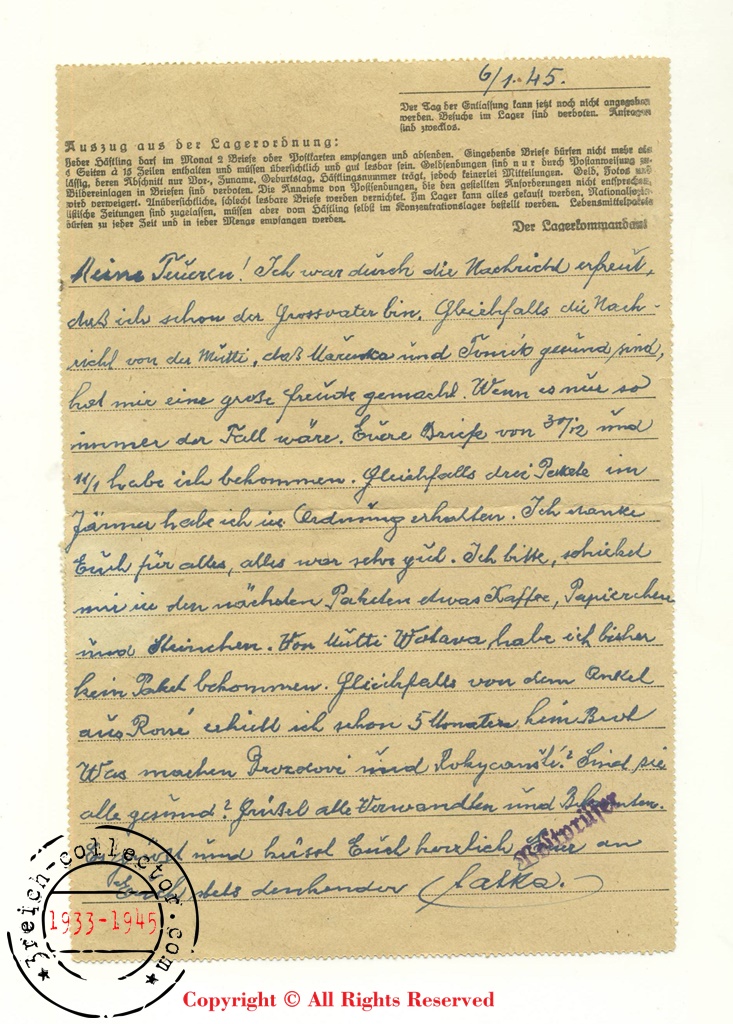 6/1.45.
Der Tag der Entlassung kann jetzt noch nicht angegeben
werden. Besuche im Lager sind verboten. Anfragen
sind zwecklos.
Auszug aus der Lagerordnung:
Jeder Häftling darf im Monat 2 Briefe oder Postkarten empfangen und absenden. Eingehende Briefe dürfen nicht mehr als
4 Seiten à 15 Zeilen enthalten und müssen übersichtlich und gut lesbar sein. Geldsendungen sind nur durch Postanweisung zu-
lässig, deren Abschnitt nur Vor-, Zuname, Geburtstag, Häftlingsnummer trägt, jedoch keinerlei Mitteilungen. Geld, Fotos und
Bildereinlagen in Briefen sind verboten. Die Annahme von Postsendungen, die den gestellten Anforderungen nicht entsprechen,
wird verweigert. Unübersichtliche, schlecht lesbare Briefe werden vernichtet. Im Lager kann alles gekauft werden. Nationalsozia-
listische Zeitungen sind zugelassen, müssen aber vom Häftling selbst im Konzentrationslager bestellt werden. Lebensmittelpakete
dürfen zu jeder Zeit und in jeder Menge empfangen werden.
Der Lagerkommandant
Meine Teueren! Ich war durch die Nachricht erfreut,
daß ich schon der Grossvater bin. Gleichfalls die Nach-
richt von der Mutti, daß Maruska und Tonik gesund sind,
hat mir eine große freude gemacht. Wenn es nur so
immer der Fall wäre. Euere Briefe von 30/12 und
11/1 habe ich bekommen. Gleichfalls drei Pakete im
Jänner habe ich in Ordnung erhalten. Ich danke
Euch für alles, alles war sehr gut. Ich bitte, schicket
mir in den nächsten Paketen etwas Kaffee, Papierchen
und Steinchen. Von Mutti Wotava habe ich bisher
kein Paket bekommen. Gleichfalls von dem Onkel
aus erhielt ich schon 5 Monaten kein Brot
Was machen Brozdovi und Rokycanští? Sind sie
alle gesund? Grüßet alle Verwandten und Bekannten.
und küsst Euch herzlich an
Euch stets denkender
Postprüfer
3reich-collector.com
1933-1945
Copyright © All Rights Reserved